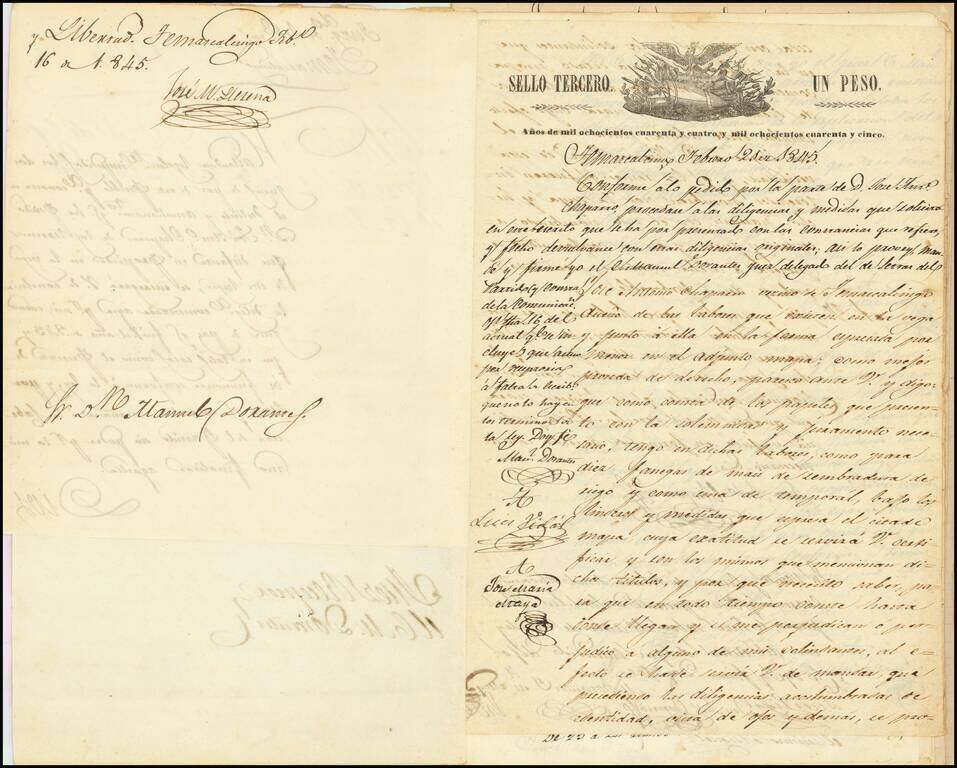 y Libertad. Temascalcingo Dbre
16 de 1.845.
José M. Llerena
Sr. Dn. Manuel Dorantes.
SELLO TERCERO.
UN PESO.
Años de mil ochocientos cuarenta y cuatro y mil ochocientos cuarenta y cinco.
Temascalcingo Febrero de 1845.
Conforme á lo pedido por la parte de D. José Anto.
Chaparro, procedase a las diligencias y medidas que solicita
en este escrito que se ha por presentado con las constancias que refiere,
y fecho devuelvanse con estas diligencias originales; asi lo provey man
dé y firmé yo el C. Manuel Dorantes juez delegado del de Letras del
Partido
José Antonio Chaparro vecino de Temascalcingo
dueño de las labores que existen en la vega
y junto á ella en la forma espresada por
menor en el adjunto mapa; como mejor
proceda de derecho, paresco ante V. y digo:
que como consta de los papeles que presen-
to con la solemnidad y juramento nece-
sario, tengo en dichas labores, como para
diez fanegas de mais de sembradura de
riego y como una de temporal, bajo los
linderos y medidas que espresa el citado
mapa cuya exatitud se servirá V. certi-
ficar y son los mismos que mencionan di-
chos titulos, y por que necesito saber, pa-
ra que en todo tiempo conste hasta
donde llegan y si me perjudican o per-
judico á alguno de mis colindantes, al e-
fecto se ha de servir V. de mandar, que
precediendo las diligencias acostumbradas de
identidad, vista de ojos y demás, se pro-
de la
actual
á falta de
que no lo hay en
los terminos
la ley. Doy fe
Manl. Dorantes
A
Luis
A
José Maria
Maya